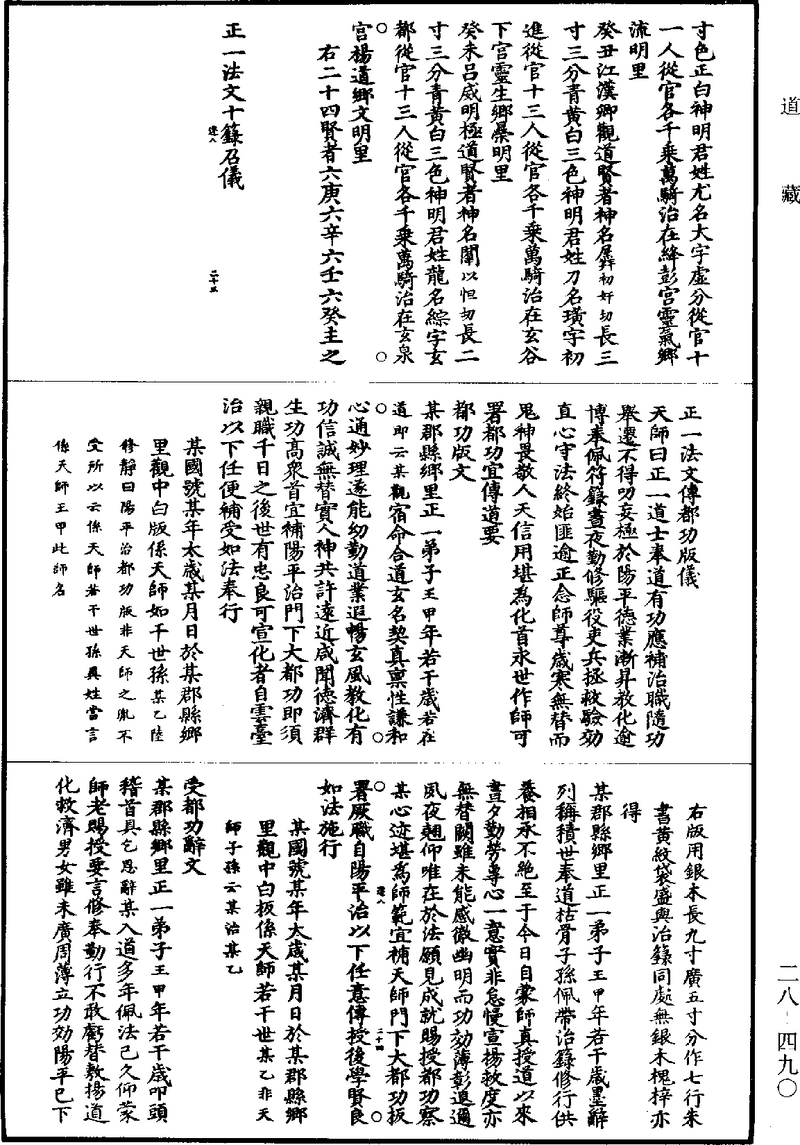 道藏
寸色正白神明君姓尤名大字虛分從官十
一人從官各千乘萬騎治在絳彭宮靈氣鄉
流明里
癸丑江漢卿觀道賢者神名屛初奸切長三
寸三分青黃白三色神明君姓刀名璜字初
進從官十三人從官各千乘萬騎治在玄谷
下宮靈生鄉桑明里
癸未呂威明極道賢者神名闡以怛切長二
寸三分青黃白三色神明君姓龍名綜字玄
都從官十三人從官各千乘萬騎治在玄泉
宮楊道鄉文明里
右二十四賢者六庚六辛六壬六癸主之
正一法文十籙召儀
逹八
二十五
正一法文傳都功版儀
天師曰正一道士奉道有功應補治職隨功
舉遷不得叨妄極於陽平德業漸昇教化逾
博奉佩符籙晝夜勤修驅役吏兵拯救驗効
直心守法終始匪逾正念師尊歲寒無替而
鬼神畏敬人天信用堪為化首永世作師可
署都功宜傳道要
都功版文
某郡縣鄉里正一弟子王甲年若干歲若在
道即云某觀宿命合道玄名契真禀性謙和
心通妙理遂能幼勤道業遐暢玄風教化有
功信誠無替實人神共許遠近咸聞德濟群
生功高眾首宜補陽平治門下大都功即須
親職千日之後世有忠良可宣化者自雲臺
治以下任便補受如法奉行
某國號某年太歲某月日於某郡縣鄉
里觀中白版係天師如干世孫某乙陸
修靜曰陽平治都功版非天師之胤不
受所以云係天師若干世孫異姓當言
係天師王甲此師名
右版用銀木長九寸廣五寸分作七行朱
書黃紋袋盛與治籙同處無銀木槐梓亦
得
某郡縣鄉里正一弟子王甲年若干歲罢辭
列稱積世奉道枯骨子孫佩帶治籙修行供
養相承不絕至于今日自蒙師真授道以來
晝夕勤勞專心一意實非怠慢宣揚救度亦
無替闕雖未能感徹幽明而功効薄彰遐邇
夙夜翹仰唯在於法願見成就賜授都功察
某心迹堪為師範宜補天師門下大都功板
逹八
二十四
署厥職自陽平治以下任意傳授後學賢良
如法施行
某國號某年太歲某月日於某郡縣鄉
里觀中白板係天師若干世某乙非天
師子孫云某治某乙
受都功辭文
某郡縣鄉里正一弟子王甲年若干歲叩頭
稽首具乞恩辭某入道多年佩法已久仰蒙
師老賜授要言修奉勤行不敢虧替教揚道
化救濟男女雖未廣周薄立功効陽平已下
二八-四九〇